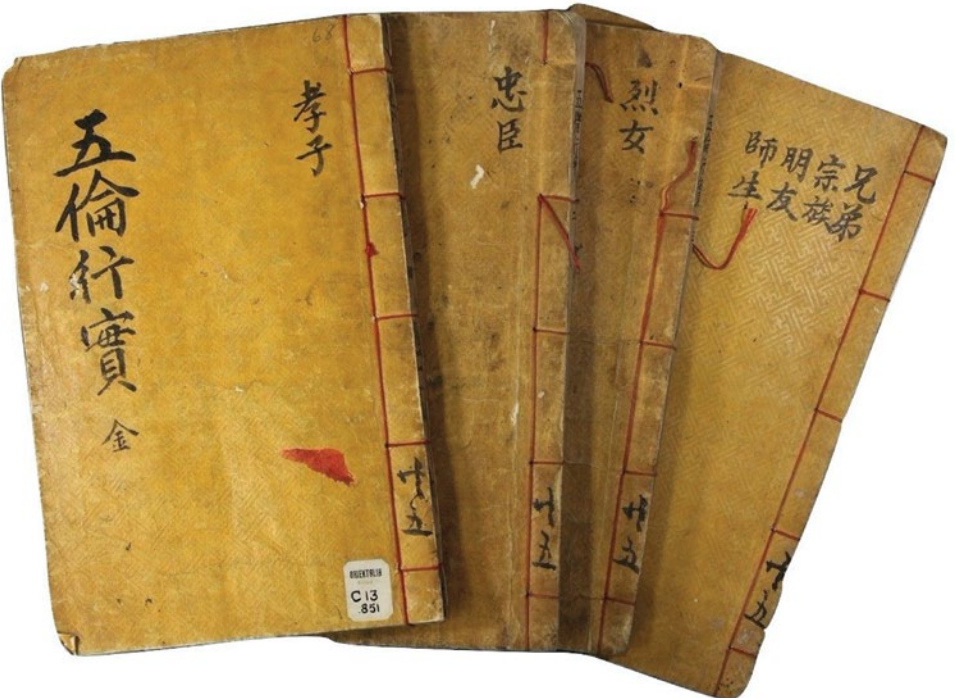 68
孝子
五倫行實 金
共五
ORIENTALIA
C13
.851
忠臣
共五
烈女
共五
兄弟
宗族
朋友
師生
共五